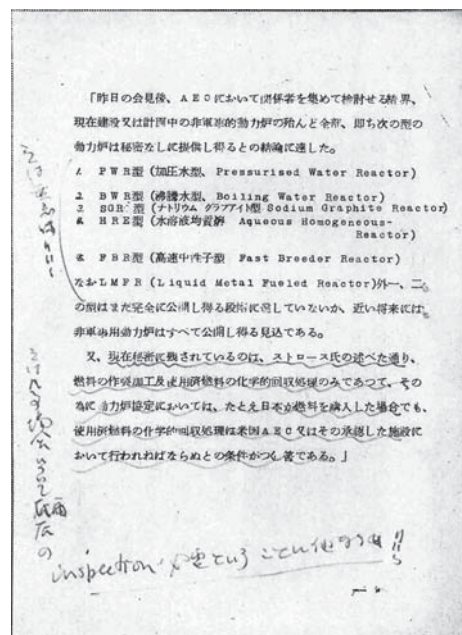 「昨日の会見後、AECにおいて関係者を集めて検討せる結果、
現在建設又は計画中の非軍事的動力炉の殆んど全部、即ち次の型の
動力炉は秘密なしに提供し得るとの結論に達した。
1. PWR型(加圧水型、Pressurised Water Reactor)
2. BWR型(沸騰水型、Boiling Water Reactor)
3. SGR型(ナトリウム グラフアイト型 Sodium Graphite Reactor)
4. HRE型(水溶液均質 Aqueous Homogeneous-
Reactor)
FBR型(高速中性子型 Fast Breeder Reactor)
なおLMFR(Liquid Metal Fueled Reactor)外一、二
の型はまだ完全に公開し得る段階に達していないが、近い将来には
非軍事用動力炉はすべて公開し得る見込である。
又、現在秘密に残されているのは、ストロース氏の述べた通り、
燃料の作製加工及使用済燃料の化学的回収処理のみであつて、その
為に動力炉協定においては、たとえ日本が燃料を購入した場合でも、
使用済燃料の化学的回収処理は米国AEC又はその承認した施設に
おいて行われねばならぬとの条件がつく筈である。」
inspection